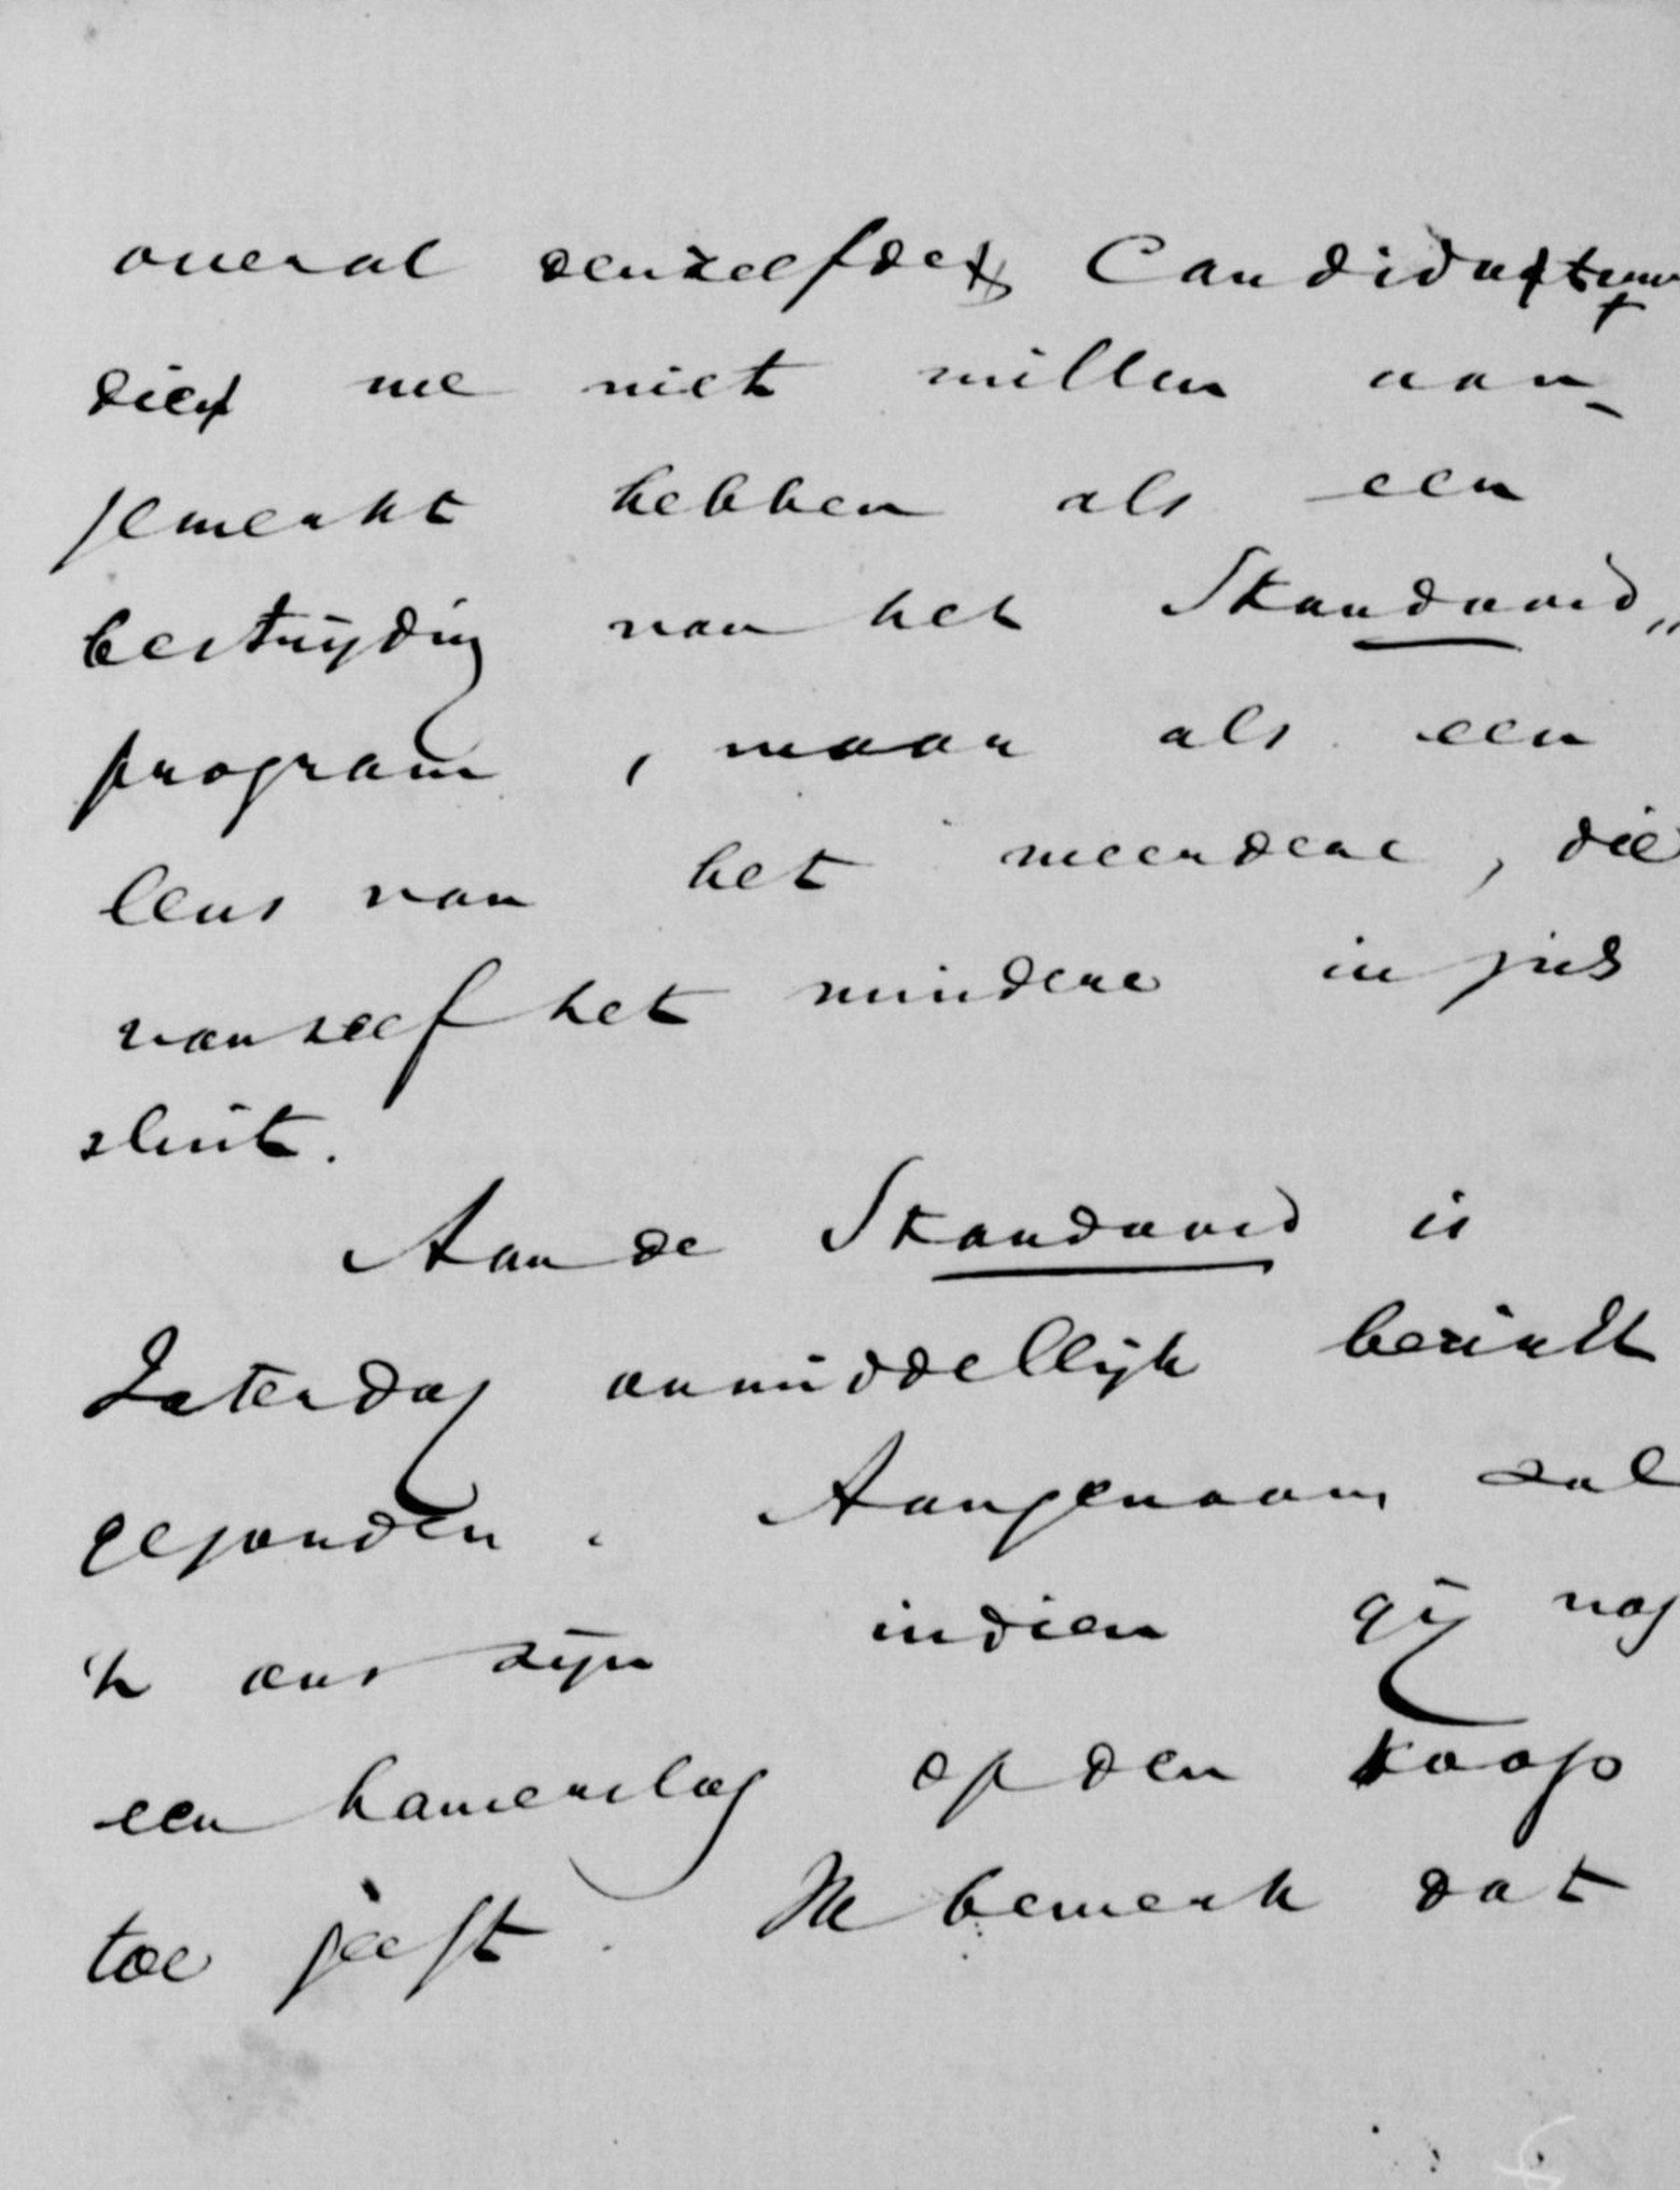 overal denzelfden Candidaten
dien we niet willen aan-
gemerkt hebben als een
bestrijding van het Standaard„
program, maar als een
leus van het meerdere, die
vanzelf het mindere in zich
sluit.
Aan de Standaard is
Zaterdag onmiddellijk bericht
gezonden. Aangenaam zal
't ons zijn indien gij nog
een hamerslag op den koop
toe geeft. Ik bemerk dat